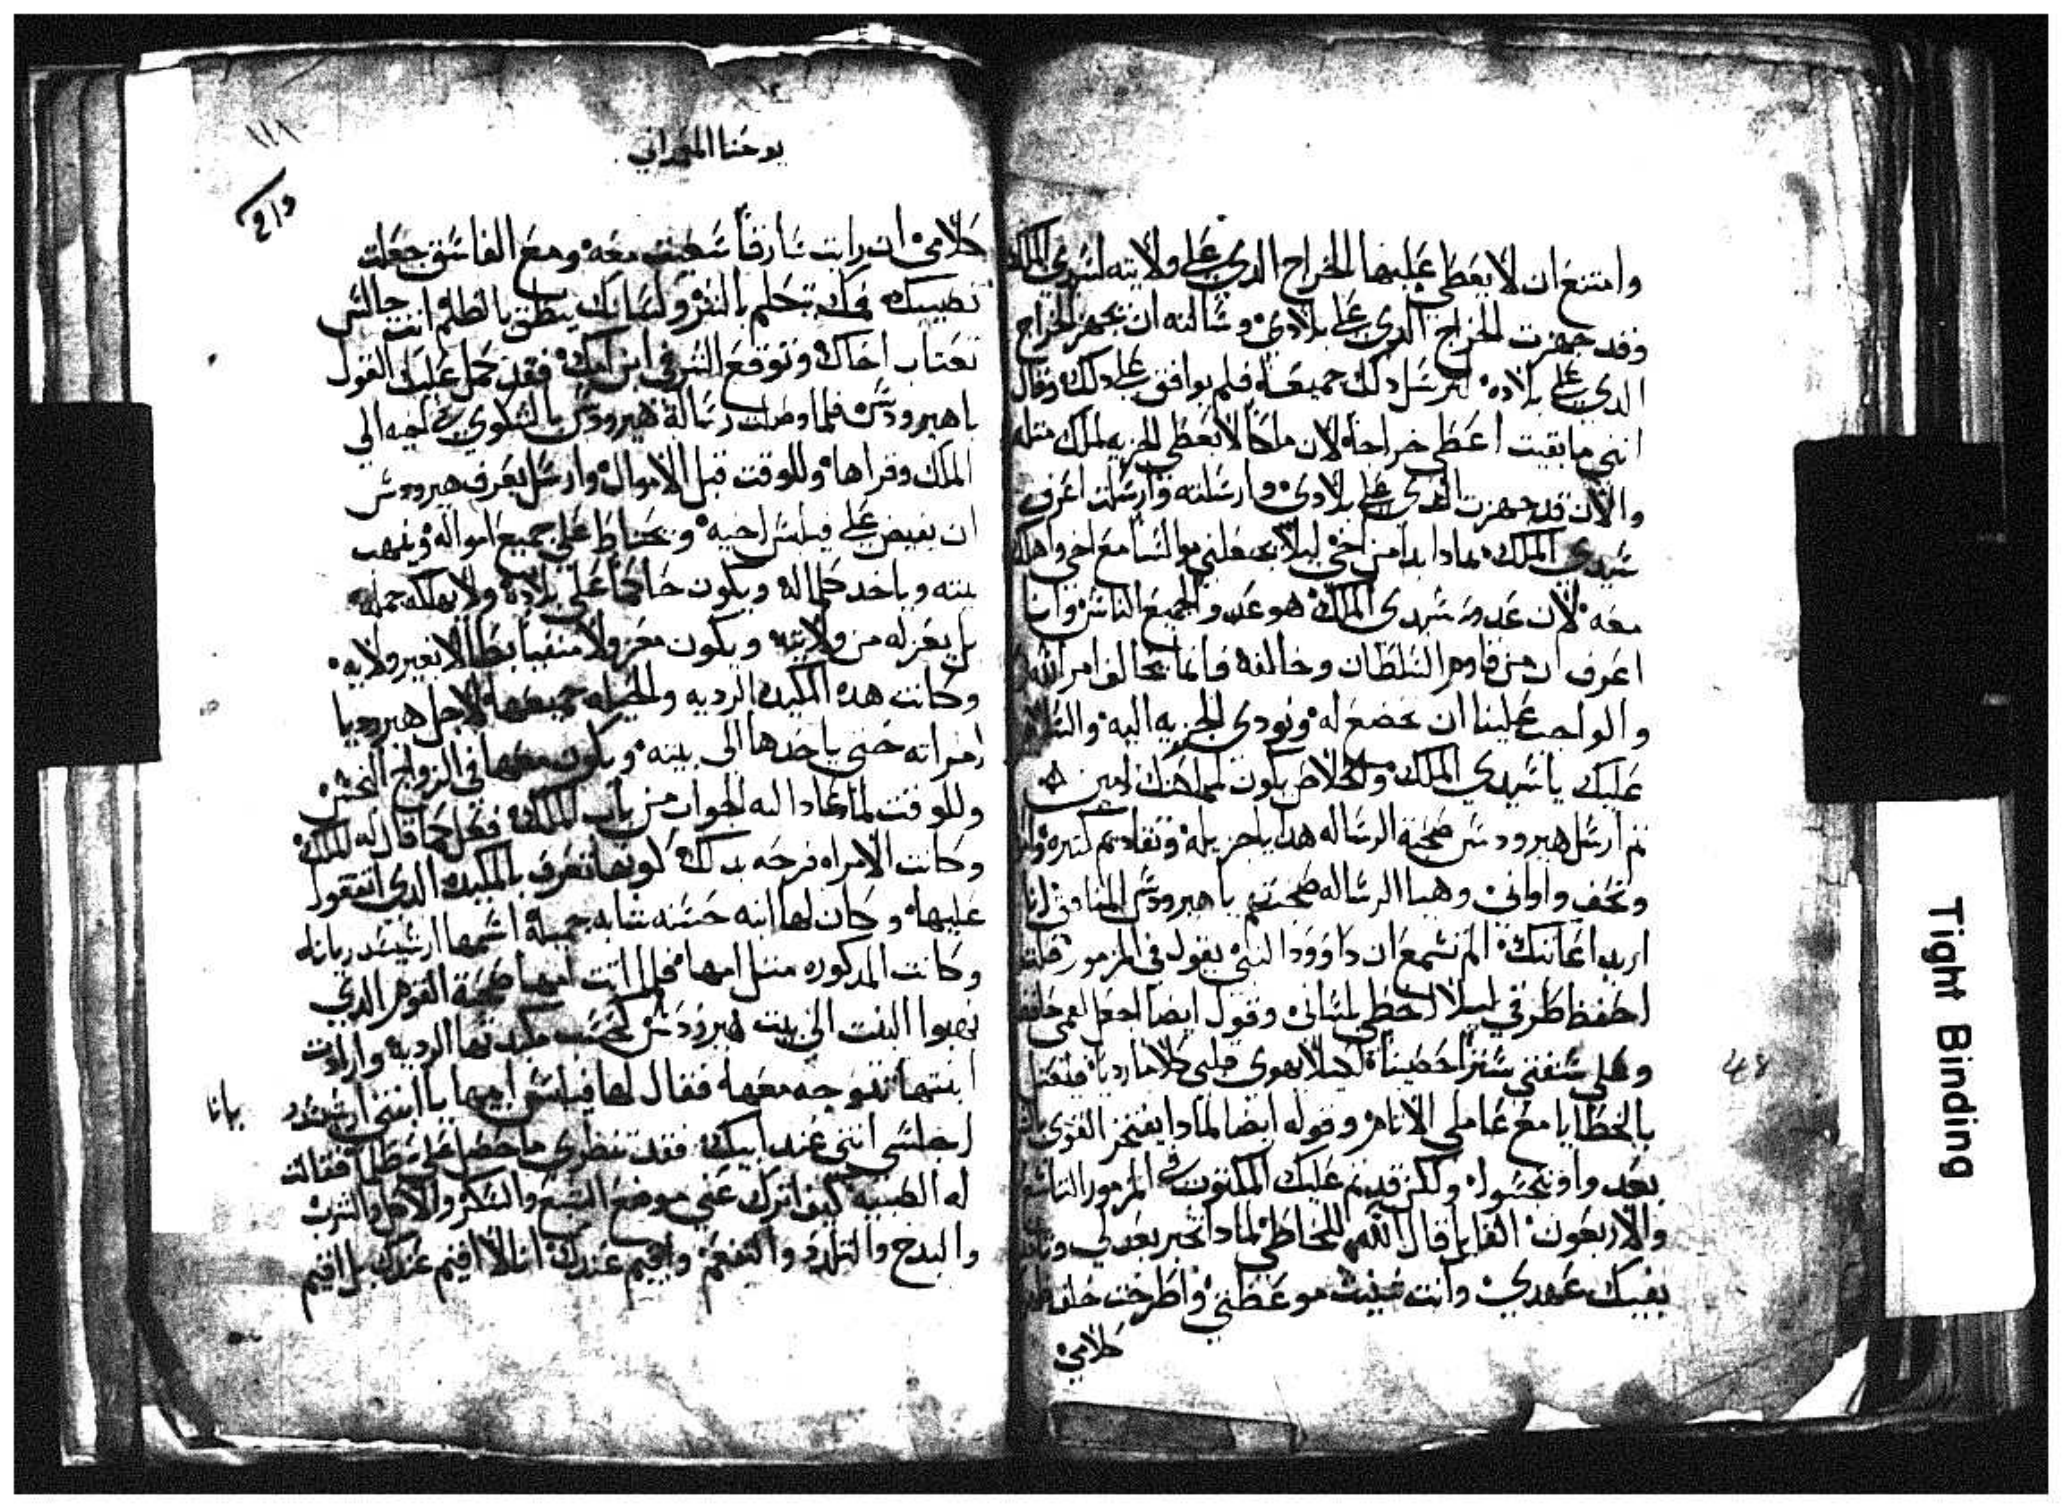 وامتنع ان لا يعطي عليها الخراج الدي على ولايته لسيدي الملك
وقد جهزت الخراج الدي على بلادي وسالته ان يجهز الخراج
الدي على بلاده لنرسل دلك جميعه فلم يوافق على دلك وقال
انني ما بقيت اعطي خراجا لان ملكا لا يعطي الجزيه لملك متله
والان قد جهزت الدي على بلادي وارسلته وارسلت اعرف
سيدي الملك بمادا بدا من اخي ليلا يجعلني مع اخي واهلك
معه لان عدو سيدي الملك هو عدو لجميع الناس وانا
اعرف ان من قاوم السلطان وخالفه فانما يخالف امر الله
والواجب علينا ان نخضع له ونودي الجزيه اليه والسلام
عليك يا سيدي الملك والخلاص يكون لمملكتك امين
تم ارسل هيرودس صحبة الرساله هدايا جزيله وتقادم كتيره
وتحف واواني وهيا الرساله صحبتهم يا هيرودس المنافق انا
اريد اعاتبك الم تسمع ان داوود النبي يقول في المزمور قلت
احفظ طرقي ليلا اخطي بلساني وقول ايضا اجعل لفمي حافظا
وعلى شفتي سترا حصينا لكيلا يهوي قلبي كلاما رديا فيعتل
بالخطايا مع عاملي الاتام وقوله ايضا لمادا يفتخر القوي
ولكن قد تم عليك المكتوب في المزمور التاسع
والاربعون القايل قال الله للخاطي لمادا تخبر بعدلي
بفيك عهدي وانت شنيت موعظتي واطرحت خلفك
كلامي
يوحنا المعمداني
١١٨
كلامي ان رايت سارقا سعيت معه ومع الفاسق جعلت
نصيبك فمك تكلم بالشر ولسانك ينطق بالظلم انت جالس
تغتاب اخاك وتوقع الشر في ابن امك فقد حمل عليك القول
يا هيرودس فلما وصلت رسالة هيرودس بالشكوي في اخيه الي
الملك وقراها وللوقت قبل الاموال وارسل يعرف هيرودس
ان يقبض على فيلبس اخيه ويحتاط على جميع امواله وينهب
بيته وياخد كلما له ويكون حاكما على بلاده ولا يهلكه جمله
بل يعزله من ولايته ويكون معزولا منفيا بطالا بغير ولايه
وكانت هده المكيده الرديه والحيله جميعها لاجل هيروديا
امراته حتي ياخدها الى بيته ويكون معها في الزواج النجس
وللوقت لما عاد اليه الجواب من باب الملك فعل كما قال له الملك
وكانت الامراه فرحه بدلك كونها تعرف بالمكيده الدي اتفقوا
عليها وكان لها ابنه حسنه شابه جميلة اسمها ارسيسد ريانا
وكانت المدكوره متل امها فلما اتت امها صحبة القوم الدي
نهبوا البيت الى بيت هيرودس كحسب مكيدتها الرديه وارادت
ابنتها تتوجه معها فقال لها فيلبس ابيها يا ابنتي
اجلسي انتي عند ابيك فقد تنظري ما حصل علي ظلما فقالت
له الصبيه كيف اترك عني موضع الشبع والسكر والاكل والشرب
والبدخ والتلدد والتنعم واقيم عندك انا لا اقيم عندك بل اقيم